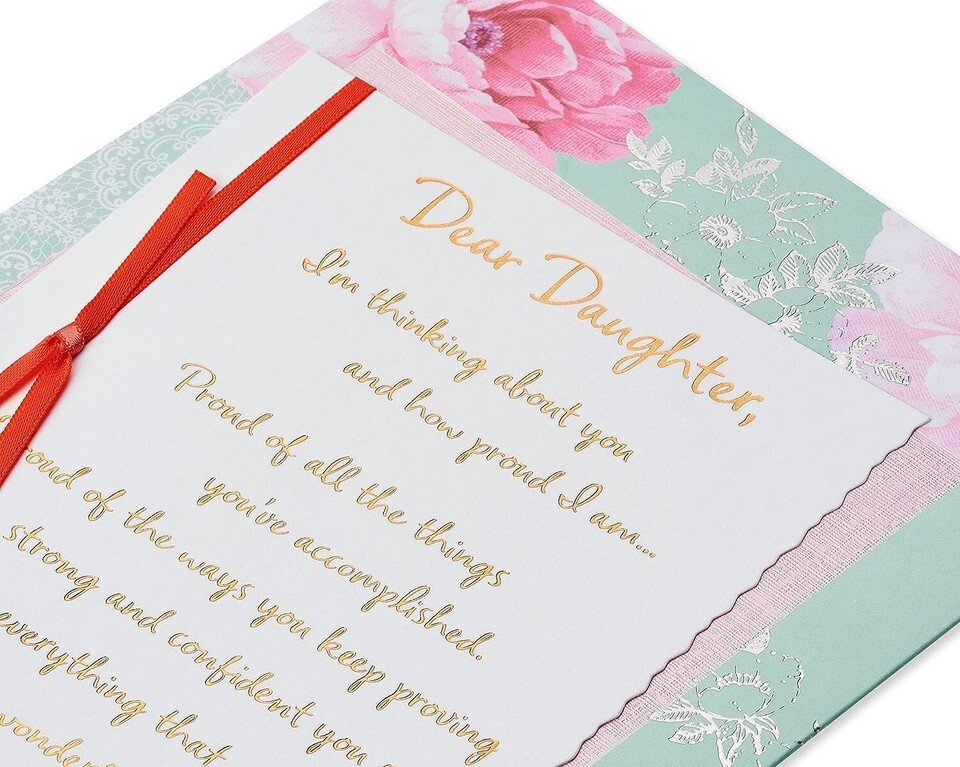 Dear Daughter,
I'm thinking about you
and how proud I am...
Proud of all the things
you've accomplished.
of the ways you keep proving
strong and confident you
everything that